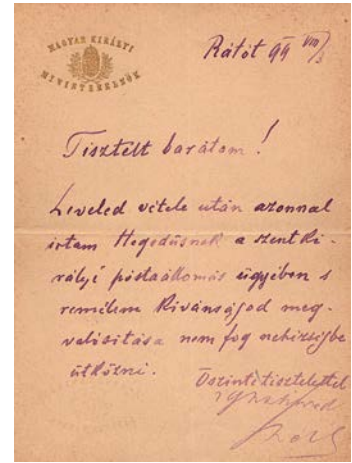 MAGYAR KIRÁLYI
MINISTERELNÖK
Rátót 99 VIII/3
Tisztelt barátom!
Leveled vétele után azonnal
irtam Hegedűsnek a szentki-
rályi póstaállomás ügyében s
remélem kivánságod meg-
valósitása nem fog nehézségbe
ütközni.
Őszinte tisztelettel
Széll